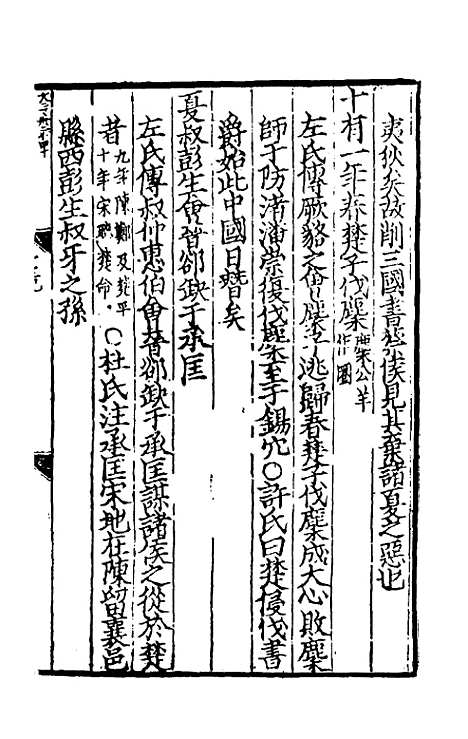 夷狄矣故削三國書蔡侯見其棄諸夏之惡也
十有一年春楚子伐麇麇公羊作圈
左氏傳厥貉之會麇子逃歸春楚子伐麇成大心敗麇
師于防渚潘崇復伐麇至于錫穴○許氏曰楚侵伐書
爵始此中國日替矣
夏叔彭生會晉郤缺于承匡
左氏傳叔仲惠伯會晉郤缺于承匡謀諸侯之從於楚
者九年陳鄭及楚平十年宋聽楚命○杜氏注承匡宋地在陳留襄邑
縣西彭生叔牙之孫